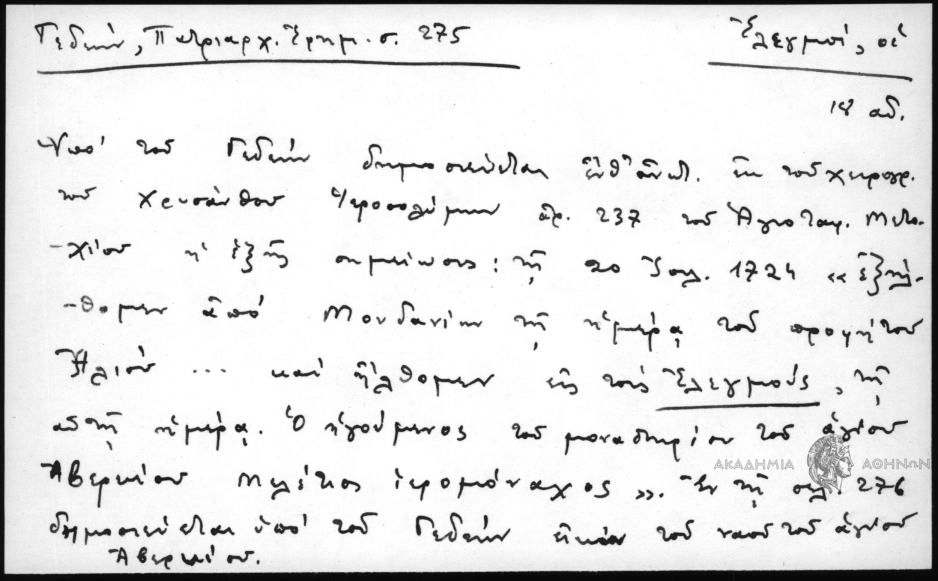 Γεδεών, Πατριαρχ. Ἐφημ. σ. 275
Ἐλεγμοί, οἱ
18 αἰ.
Ὑπὸ τοῦ Γεδεὼν δημοσιεύεται ἐνθ' ἀνωτ. ἐκ τοῦ χειρογρ.
τοῦ Χρυσάνθου Ἱεροσολύμων ἀρ. 237 τοῦ Ἁγιοταφ. Μετο-
-χίου ἡ ἑξῆς σημείωσις: τῇ 20 Ἰουλ. 1724 «ἐξήλ-
-θομεν ἀπὸ Μουδανίων τῇ ἡμέρᾳ τοῦ προφήτου
Ἠλιού ... καὶ ἤλθομεν εἰς τοὺς Ἐλεγμούς, τῇ
αὐτῇ ἡμέρᾳ. Ὁ ἡγούμενος τοῦ μοναστηρίου τοῦ ἁγίου
Ἀβερκίου Μελέτιος ἱερομόναχος». Ἐν τῇ σελ. 276
δημοσιεύεται ὑπὸ τοῦ Γεδεὼν εἰκὼν τοῦ ναοῦ τοῦ ἁγίου
Ἀβερκίου.
ΑΚΑΔΗΜΙΑ ΑΘΗΝΩΝ